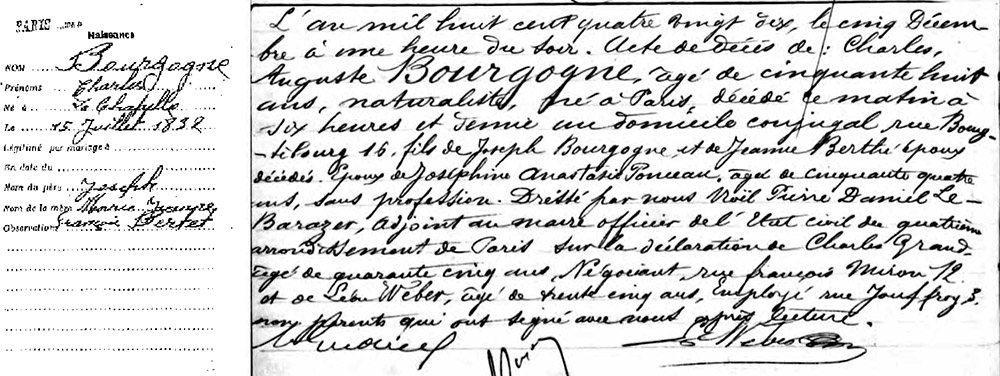 PARIS
Naissance
NOM Bourgogne
Prénoms Charles
Né à La Chapelle
Le 15 Juillet 1832
Légitimé par mariage à
En date du
Nom du père Joseph
Nom de la mère Marie Jeanne
Observations Françoise Bertet
L'an mil huit cent quatre vingt dix, le cinq Décem-
bre à une heure du soir. Acte de décès de : Charles,
Auguste Bourgogne, agé de cinquante huit
ans, naturaliste, né à Paris, décédé ce matin à
six heures et demie au domicile conjugal rue Bourg-
-tibourg 16, fils de Joseph Bourgogne et de Jeanne Berthé époux
décédés. Epoux de Joséphine Anastasie Ponceau, agée de cinquante quatre
ans, sans profession. Dressé par nous Noël Pierre Daniel Le-
Barazer, adjoint au maire officier de l'Etat civil du quatrième
arrondissement de Paris sur la déclaration de Charles Grand,
agé de quarante cinq ans, Négociant, rue françois Miron 12
et de Léon Weber, agé de trente cinq ans, Employé rue Jouffroy 3.
non parents qui ont signé avec nous après lecture.
Weber